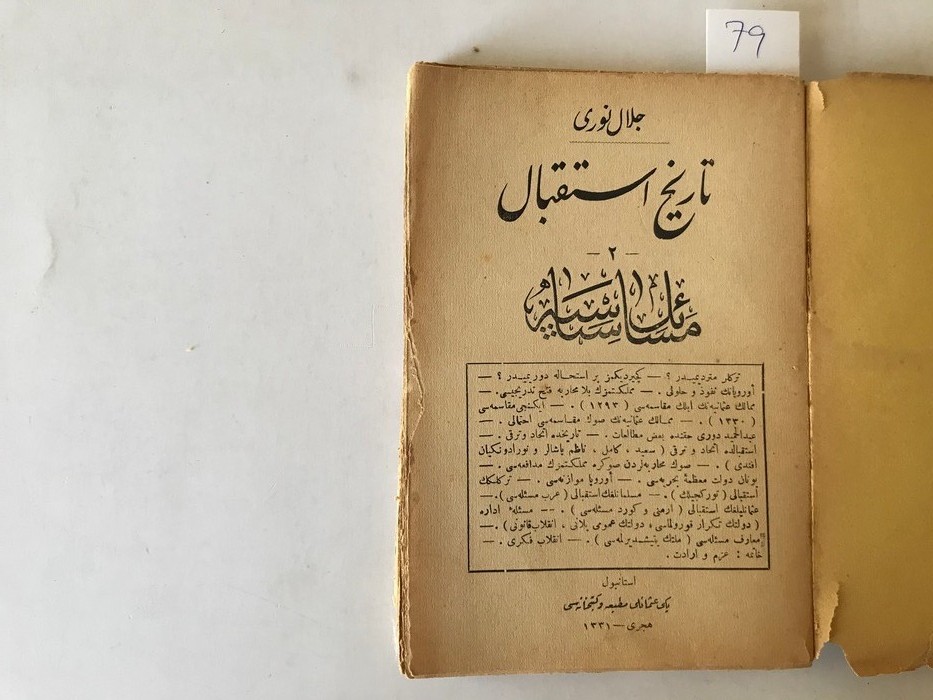 79
جلال نوری
تاریخ استقبال
— ٢ —
مسائل سیاسیه
تركلر متردیمیدر ؟ — كچیردیكمز بر استحاله دوریمیدر ؟ —
أوروپانك نفوذ و حلولی . — مملكتمزك بلا محاربه فتح تدریجیسی . —
ممالك عثمانیه‌نك ایلك مقاسمه‌سی ( ١٢٩٣ ) . — ایكنجی مقاسمه‌سی
( ١٣٣٠ ) . — ممالك عثمانیه‌نك صوك مقاسمه‌سی احتمالی . —
عبدالحمید دوری حقنده بعض مطالعات . — تاریخده اتحاد و ترقی . —
استقبالده اتحاد و ترقی ( سعید ، كامل ، ناظم پاشالر و نورادونكیان
افندی ) . — صوك محاربه‌لردن صوكره مملكتمزك مدافعه‌سی . —
یونان دولت معظمهٔ بحریه‌سی . — أوروپا موازنه‌سی . — تركلكك
أستقبالی ( تورکجیلك ) . — مسلمانلغك استقبالی ( عرب مسئله‌سی ) . —
عثمانلیلغك استقبالی ( ارمنی و كورد مسئله‌سی ) . -- مسئلهٔ اداره
( دولتك تكرار قورولماسی ، دولتك عمومی پلانی ، انقلاب قانونی ) . —
معارف مسئله‌سی ( ملتك یتیشدیرلمه‌سی ) . — انقلاب فكری . —
خاتمه : عزم و ارادت .
استانبول
یكی عثمانلی مطبعه و كتبخانه‌سی
هجری — ١٣٣١